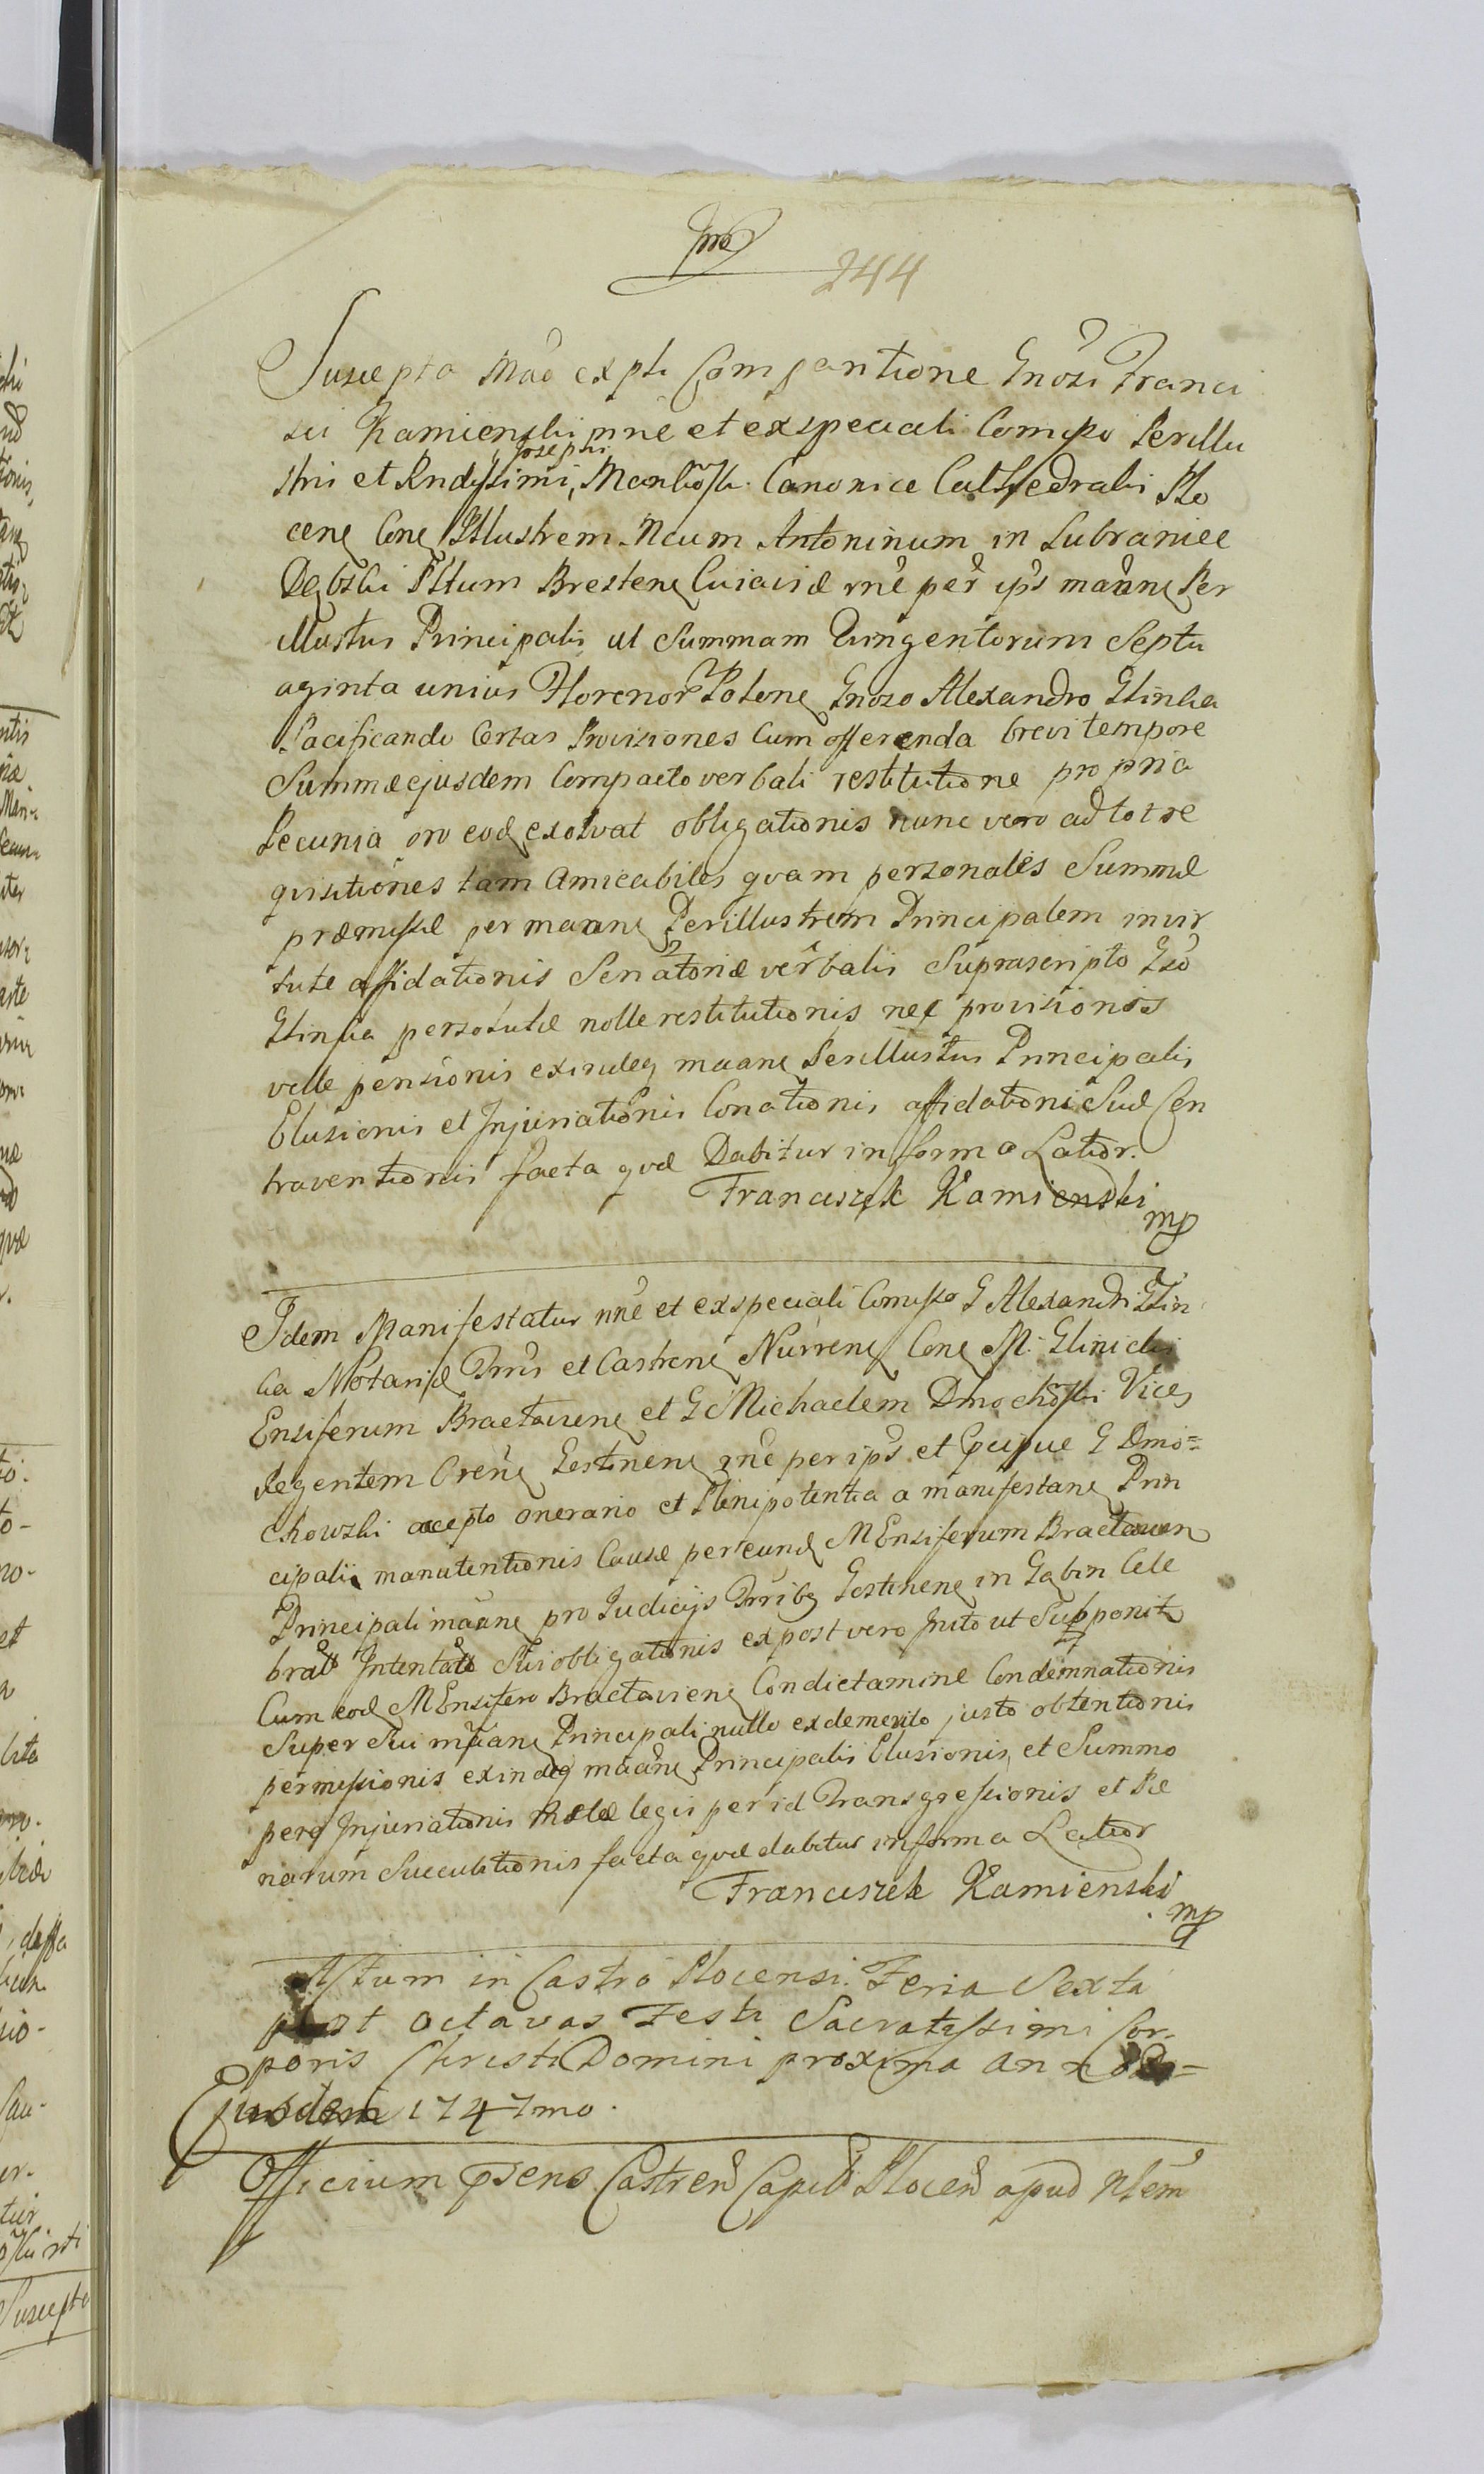 244
Suscepta Mao ex pte Comparitione Gnosi Franci
sci Kamienski nne et ex speciali Comisso Perillu
stris et Rndissimi Josephi Mankoski Canonici Cathedralis Plo
cens Cone Illustrem Mcum Antoninum in Lubraniec
Dębski Pltum Brestens Cuiaviæ rne per ips maans Per
illustris Principalis ut Summam Quingentorum Septu
aginta unius Florenor Polons Gnoso Alexandro Glinka
Pacificando Certas Provisiones Cum offerenda brevi tempore
Summæ ejusdem Compacto verbali restitutione propria
Pecunia pro eod exolvat obligationis nunc vero ad tot re
quisitiones tam Amicabiles quam personales Summæ
præmissæ per maans Perillustrem Principalem in vir
tute affidationis Senatoriæ verbalis Suprascripto Gso
Glinka persolutæ nolle restitutionis nec provisionis
velle pensionis exindeq maans Perillustris Principalis
Elusionis et Injuriationis Conationis affidationi Suæ Con
traventionis facta quæ Dabitur in forma Latior.
Franciszek Kamienski
mp
Idem Manifestatur nne et ex speciali Comisso G Alexandri Glin
ka Notarij Trris et Castrens Nurrens Cone M. Glinicki
Ensiferum Bractaviens et G Michaelem Dmochoski Vices
Regentem Crens Gostinens rne per ips et Præcipue G Dmo=
chowski accepto onerario et Plenipotentia a manifestans Prin
cipali manutentionis Causæ per eund M Ensiferum Bractavien
Principali maans pro Judicijs Trribs Gostinens in Gąbin Cele
brats Intentatæ Sui obligationis ex post vero Inito ut Supponit
Cum eod M Ensifero Bractaviens Condictamine Condemnationis
Super Sui mfians Principali nullo ex demerito justo obtentionis
permissionis exindeq maans Principalis Elusionis, et Summo
pere Injuriationis Malæ legis per id Transgressionis et Pæ
narum Succubitionis facta quæ dabitur in forma Latior
Franciszek Kamienski
mp
Actum in Castro Plocensi. Feria Sexta
post octavas Festi Sacratissimi Cor-
poris Christi Domini proxima Anno
Ejusdem 1747mo.
Officium præsens Castren Capitle Plocen apud